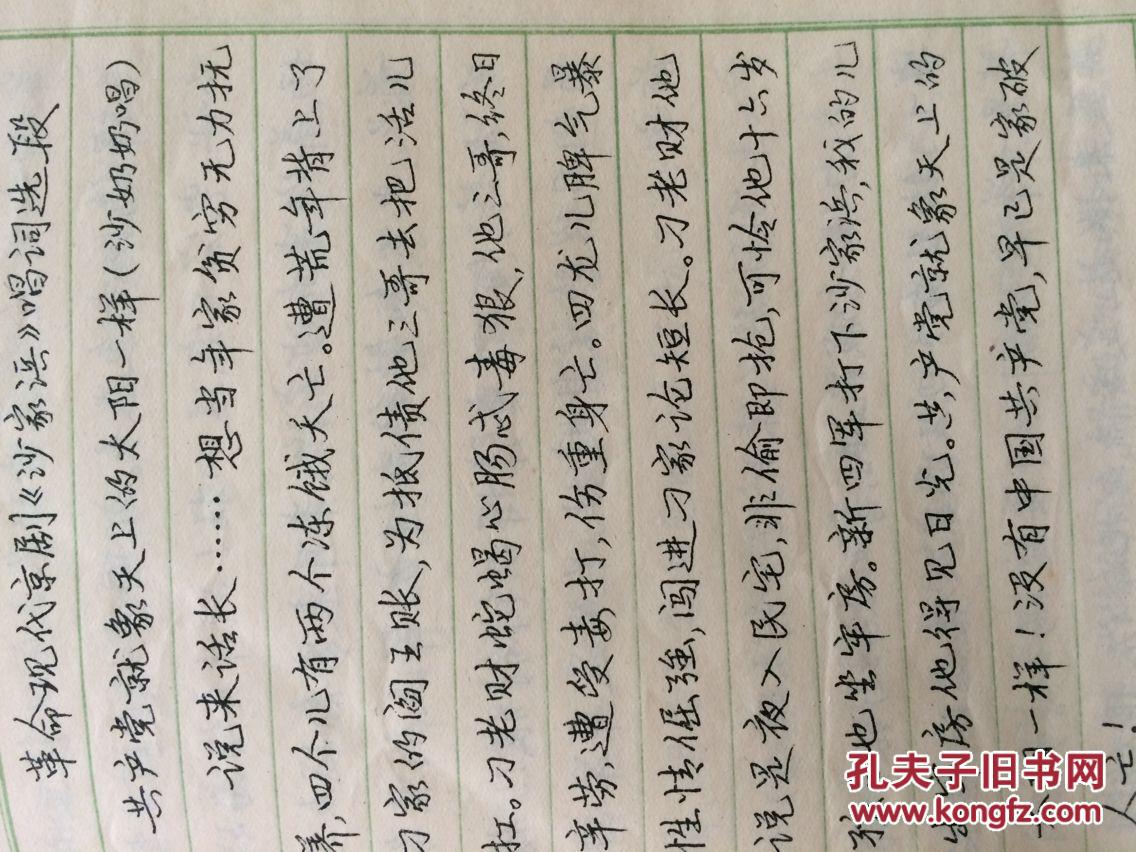 革命现代京剧《沙家浜》唱词选段
共产党就象天上的太阳一样（沙奶奶唱）
说来话长……想当年家贫穷无力抚
养，四个儿有两个冻饿夭亡。遭荒年背上了
刁家的阎王账，为抵债他三哥去把活儿
扛。刁老财蛇蝎心肠忒毒狠，他三哥，终日
辛劳，遭受毒打，伤重身亡。四龙儿脾气暴
性情倔强，闯进刁家论短长。刁老财他
说是夜入民宅，非偷即抢，可怜他十六岁
也坐牢房。新四军打下沙家浜，我的儿
房他得见日光。共产党就象天上的
一样！没有中国共产党，早已是家破
人亡！
孔夫子旧书网
www.kongfz.com